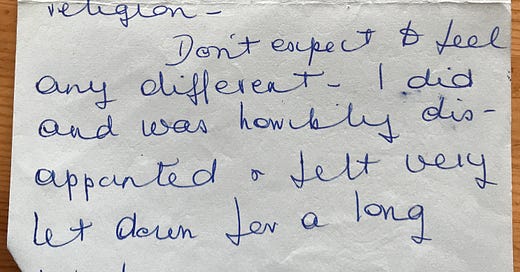 religion -
Don't expect to feel
any different - I did
and was horribly dis-
appointed & felt very
let down for a long